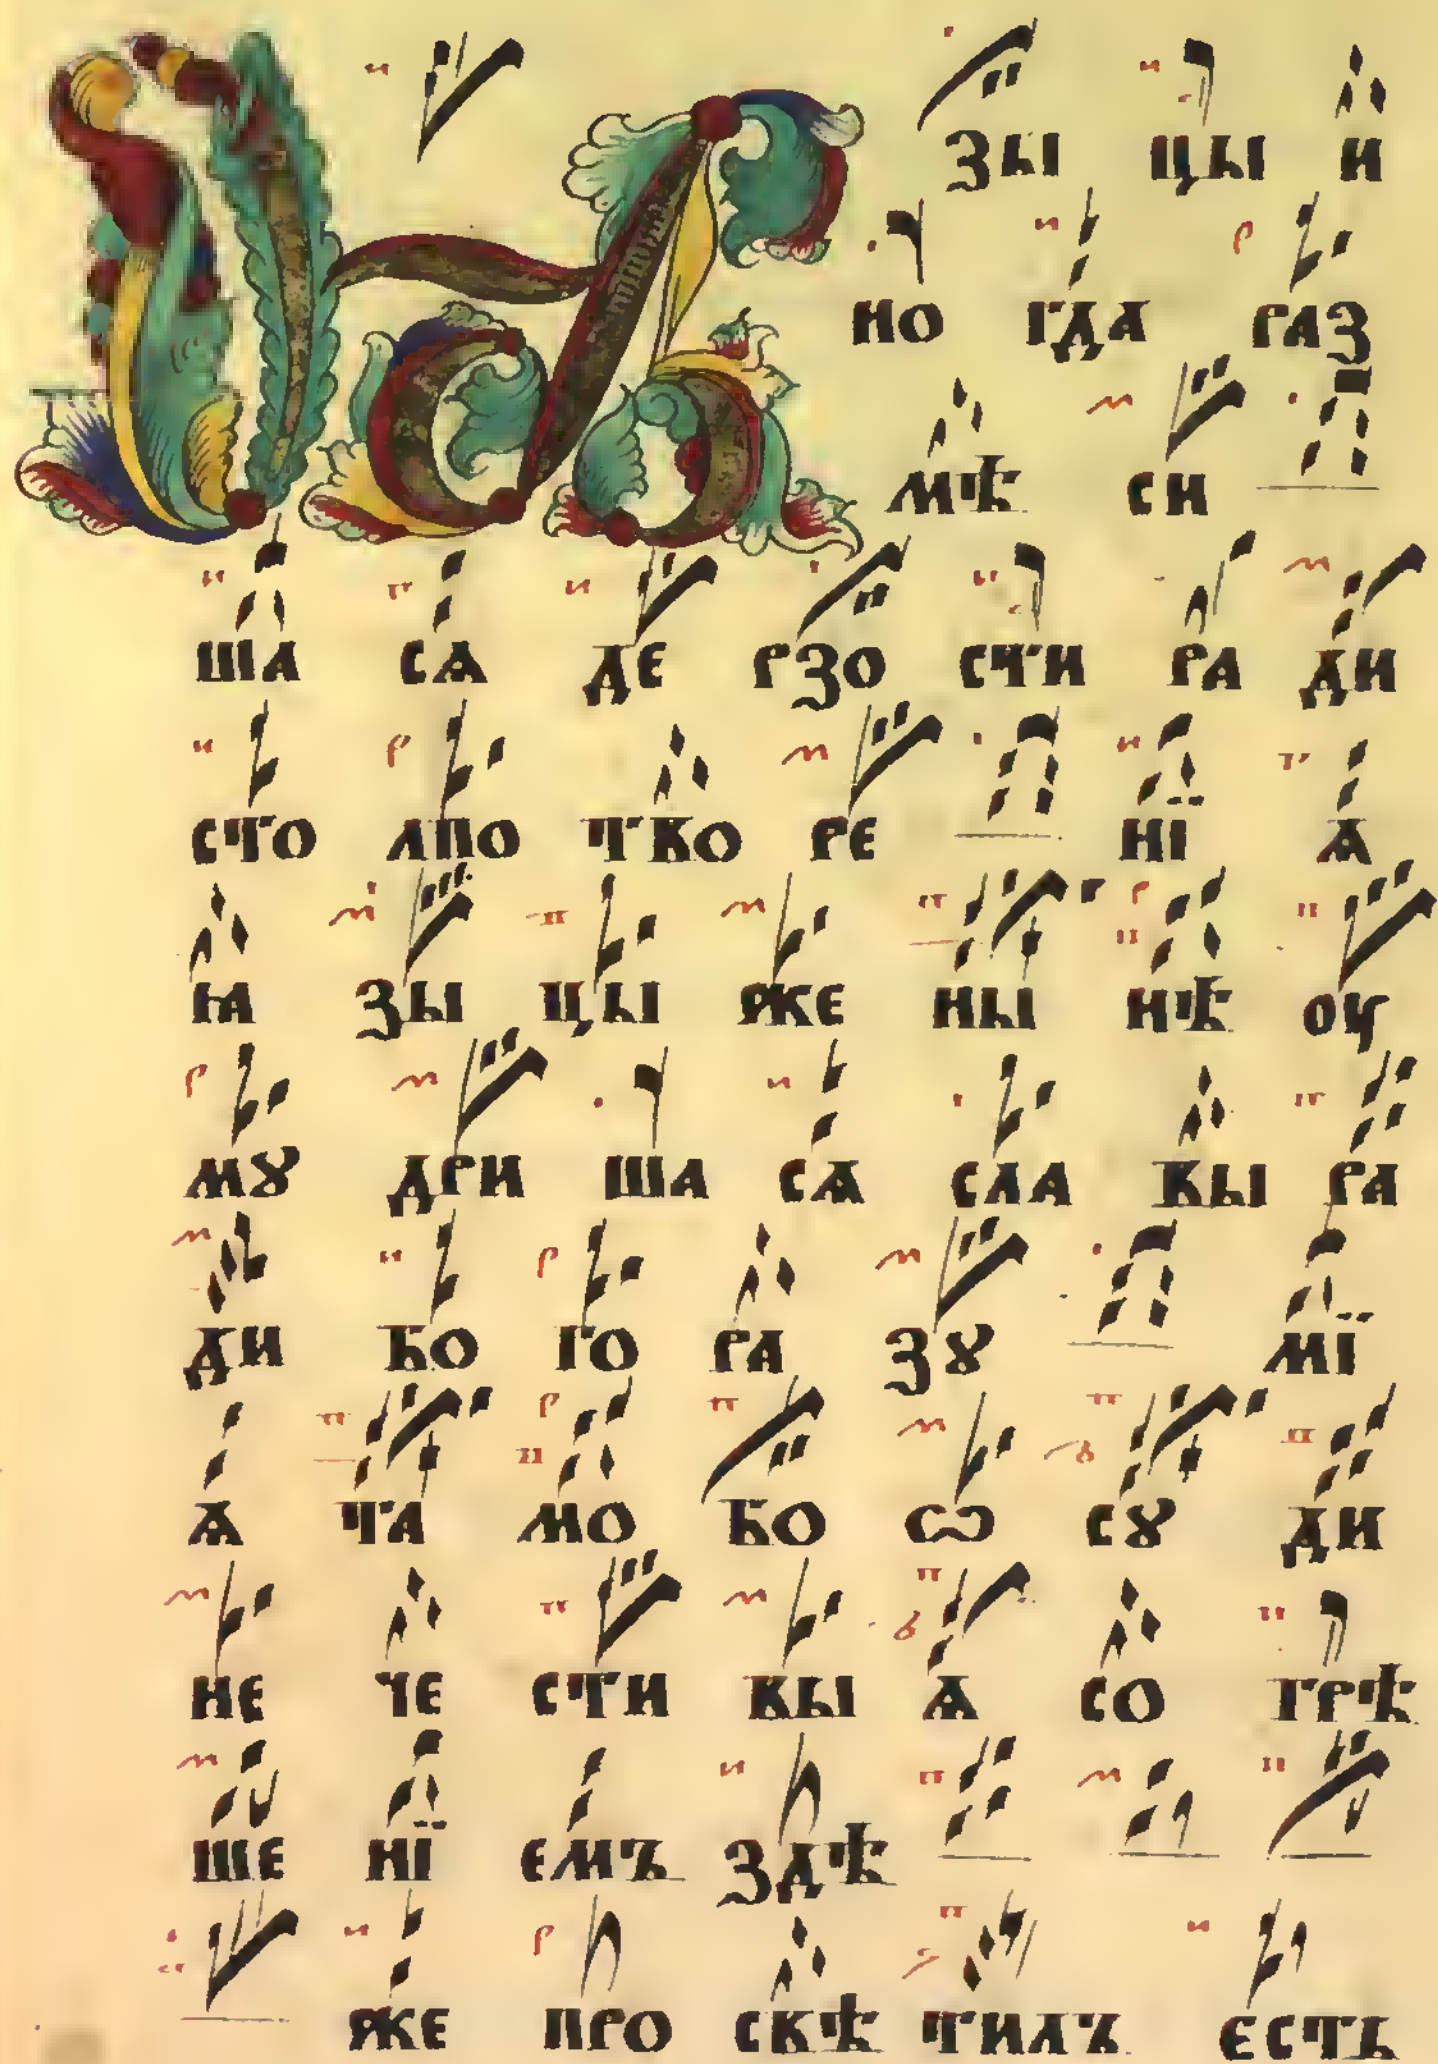 Ꙗ зы цы и
но гда раз
мѣ си
ша сѧ де рзо сти ра ди
сто лпо тво ре нї ѧ
ꙗ зы цы же ны нѣ оу
мꙋ дри ша сѧ сла вы ра
ди бо го ра зꙋ мї
ѧ та мо бо ѡ сꙋ ди
не че сти вы ѧ со грѣ
ше нї емъ здѣ
же про свѣ тилъ есть